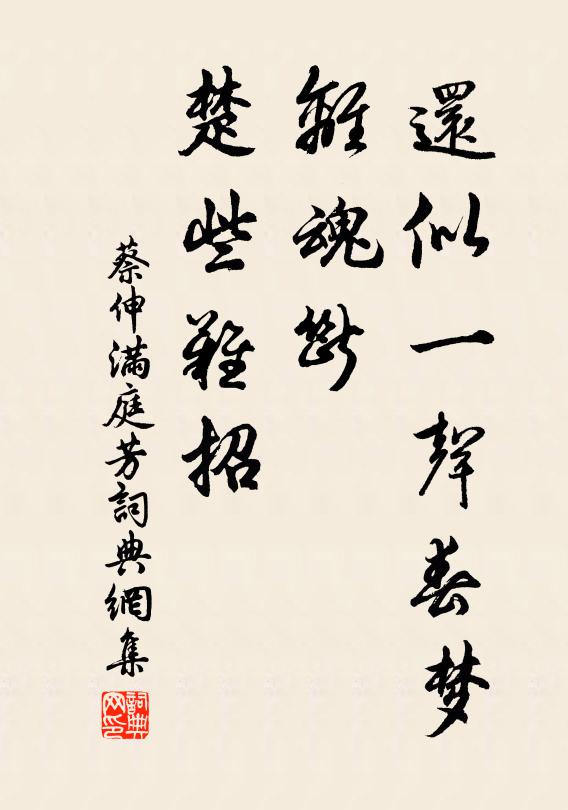 還似一聲春梦
離魂斷
楚些難招
蔡伸滿庭芳詞典網集
詞典
网印